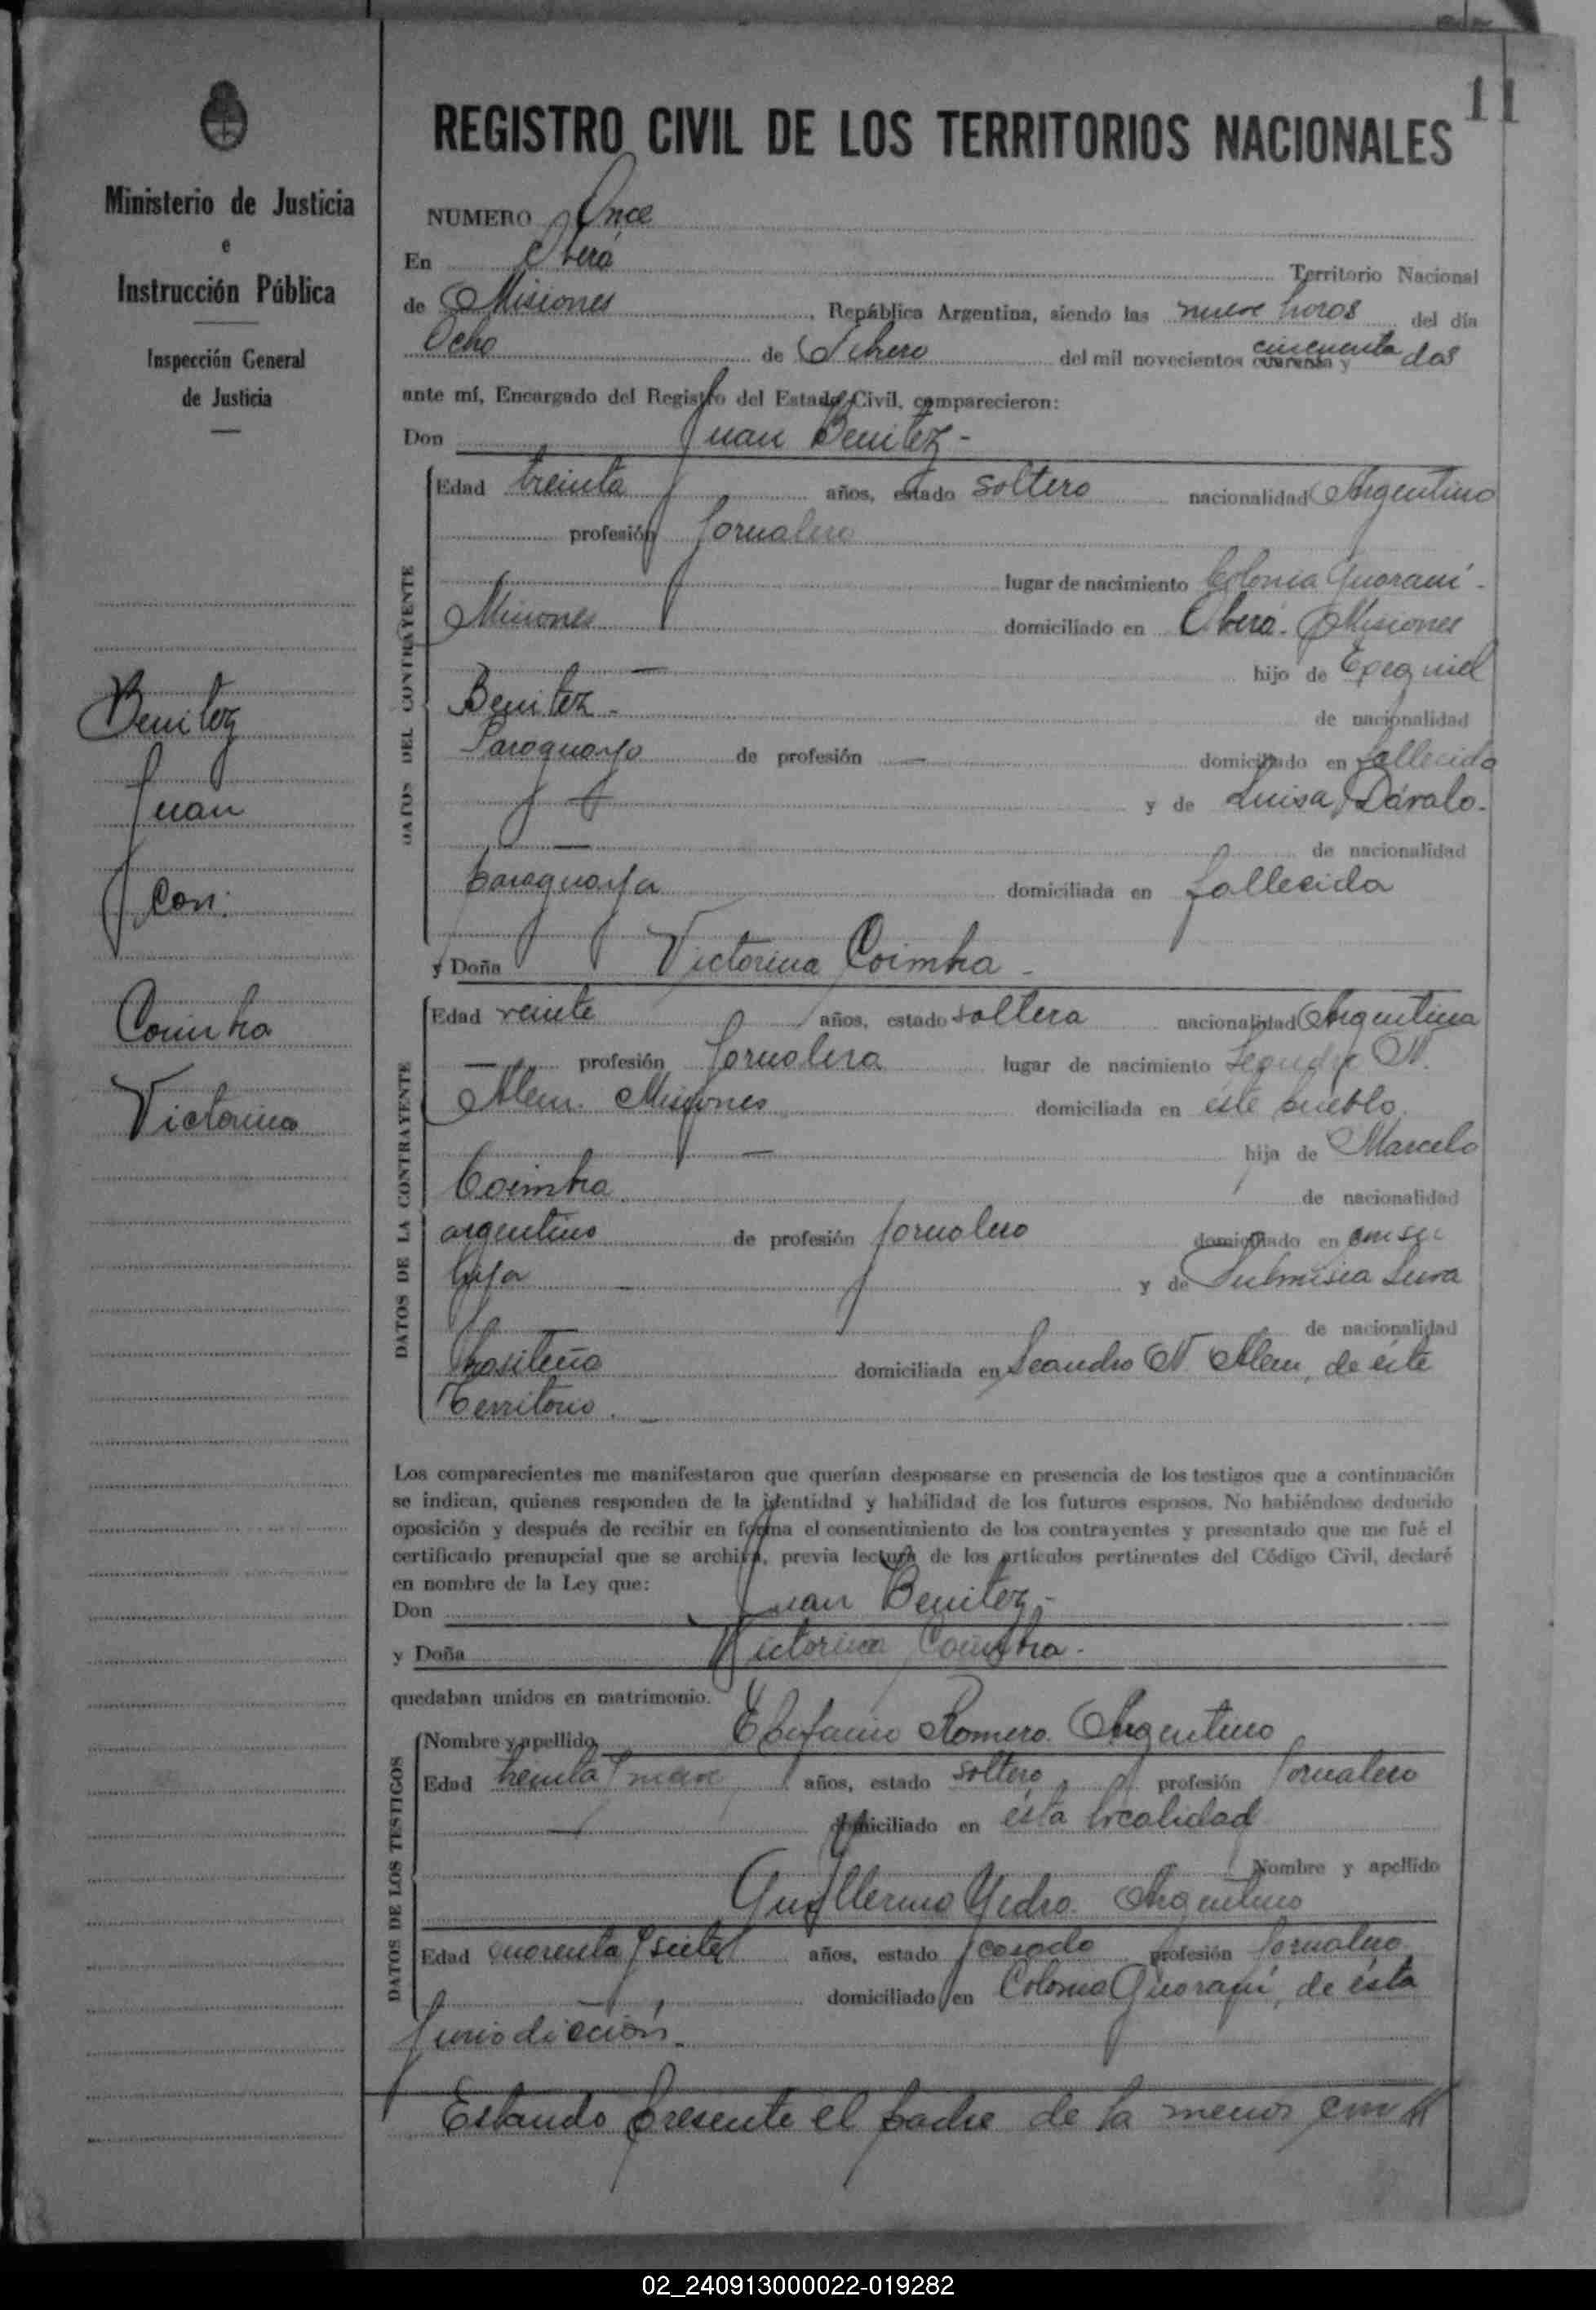 11
Ministerio de Justicia
e
Instrucción Pública
Inspección General
de Justicia
Benitez
Juan
con:
Coimbra
Victorina
REGISTRO CIVIL DE LOS TERRITORIOS NACIONALES
NUMERO Once
En Oberá Territorio Nacional
de Misiones, República Argentina, siendo las nueve horas del día
Ocho de Febrero del mil novecientos cuarenta y cincuenta dos
ante mí, Encargado del Registro del Estado Civil, comparecieron:
Don Juan Benitez -
DATOS DEL CONTRAYENTE
Edad treinta años, estado soltero nacionalidad Argentino
profesión Jornalero
lugar de nacimiento Colonia Guaraní -
Misiones domiciliado en Oberá - Misiones
— hijo de Exequiel
Benitez - de nacionalidad
Paraguayo de profesión — domiciliado en fallecido
y de Luisa Dávalo -
— de nacionalidad
paraguaya domiciliada en fallecida
y Doña Victorina Coimbra -
DATOS DE LA CONTRAYENTE
Edad veinte años, estado soltera nacionalidad Argentina
— profesión Jornalera lugar de nacimiento Leandro N.
Alem. Misiones domiciliada en este pueblo
— hija de Marcelo
Coimbra de nacionalidad
argentino de profesión Jornalero domiciliado en con su
hija y de Lura
de nacionalidad
brasileña domiciliada en Leandro N. Alem, de éste
Territorio. —
Los comparecientes me manifestaron que querían desposarse en presencia de los testigos que a continuación
se indican, quienes responden de la identidad y habilidad de los futuros esposos. No habiéndose deducido
oposición y después de recibir en forma el consentimiento de los contrayentes y presentado que me fué el
certificado prenupcial que se archiva, previa lectura de los artículos pertinentes del Código Civil, declaré
en nombre de la Ley que:
Don Juan Benitez -
y Doña Victorina Coimbra -
quedaban unidos en matrimonio.
DATOS DE LOS TESTIGOS
Nombre y apellido Epifanio Romero. Argentino
Edad treinta y nueve años, estado soltero profesión Jornalero
domiciliado en ésta localidad
Nombre y apellido
Guillermo Yedro. Argentino
Edad cuarenta y siete años, estado casado profesión Jornalero
domiciliado en Colonia Guaraní, de ésta
Jurisdicción. —
Estando presente el padre de la menor
02_240913000022-019282